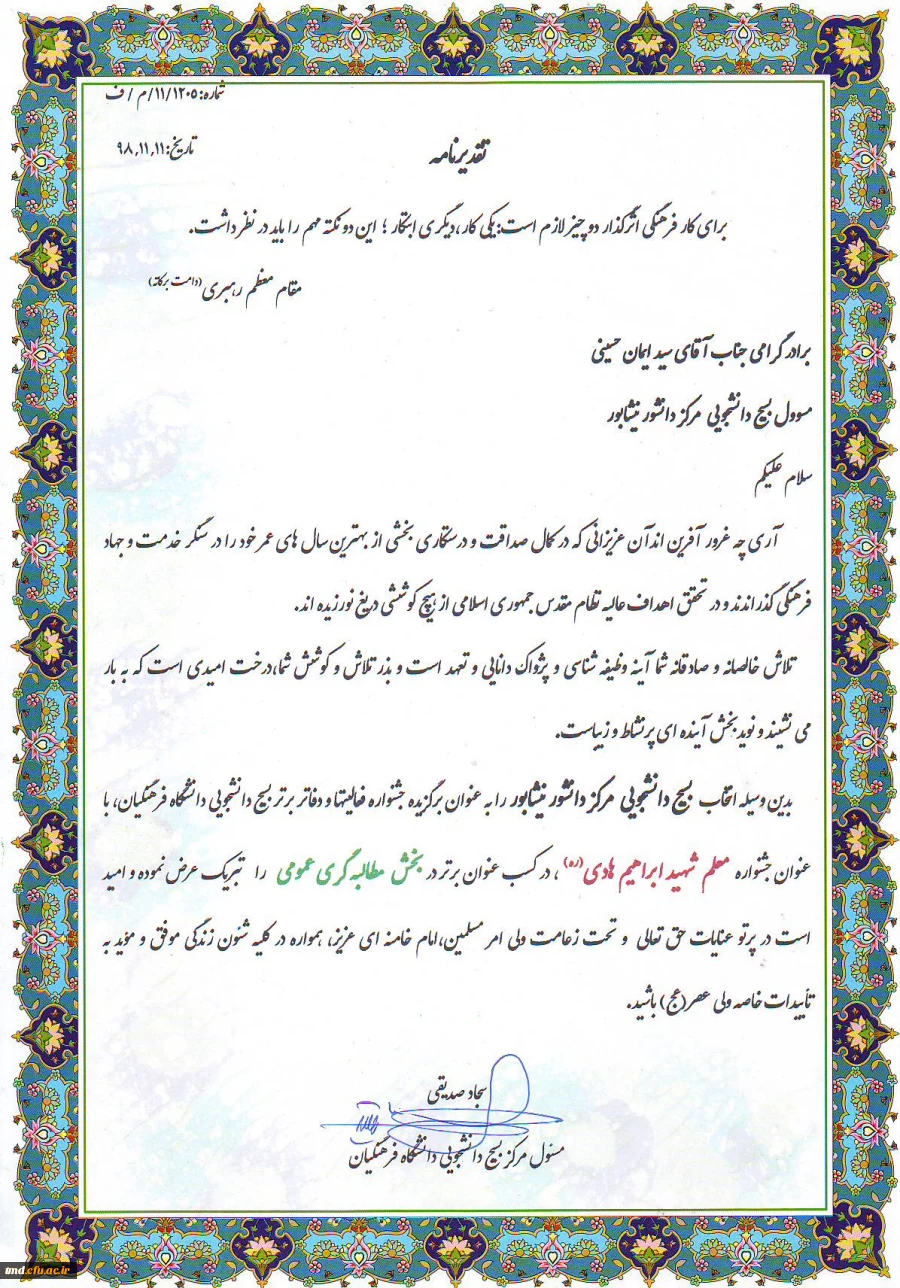 شماره: ۱۱/۱۲۰۵/م/ف
تاریخ: ۹۸,۱۱,۱۱
تقدیرنامه
برای کار فرهنگی اثرگذار دو چیز لازم است: یکی کار، دیگری ابتکار ؛ این دو نکته مهم را باید در نظر داشت.
مقام معظم رهبری (دامت برکاته)
برادر گرامی جناب آقای سید ایمان حسینی
مسوول بسیج دانشجویی مرکز دانشور نیشابور
سلام علیکم
آری چه غرور آفرین اند آن عزیزانی که در کمال صداقت و درستکاری بخشی از بهترین سال های عمر خود را در سنگر خدمت و جهاد
فرهنگی گذراندند و در تحقق اهداف عالیه نظام مقدس جمهوری اسلامی از هیچ کوششی دریغ نورزیده اند.
تلاش خالصانه و صادقانه شما آینه وظیفه شناسی و پژواک دانایی و تعهد است و بذر تلاش و کوشش شما، درخت امیدی است که به بار
می نشیند و نوید بخش آینده ای پر نشاط و زیباست.
بدین وسیله انتخاب بسیج دانشجویی مرکز دانشور نیشابور را به عنوان برگزیده جشنواره فعالیتها و دفاتر برتر بسیج دانشجویی دانشگاه فرهنگیان، با
عنوان جشنواره معلم شهید ابراهیم هادی (ره) ، در کسب عنوان برتر در بخش مطالبه گری عمومی را تبریک عرض نموده و امید
است در پرتو عنایات حق تعالی و تحت زعامت ولی امر مسلمین، امام خامنه ای عزیز، همواره در کلیه شئون زندگی موفق و موید به
تأییدات خاصه ولی عصر (عج) باشید.
سجاد صدیقی
مسئول مرکز بسیج دانشجویی دانشگاه فرهنگیان
tmd.cfu.ac.ir